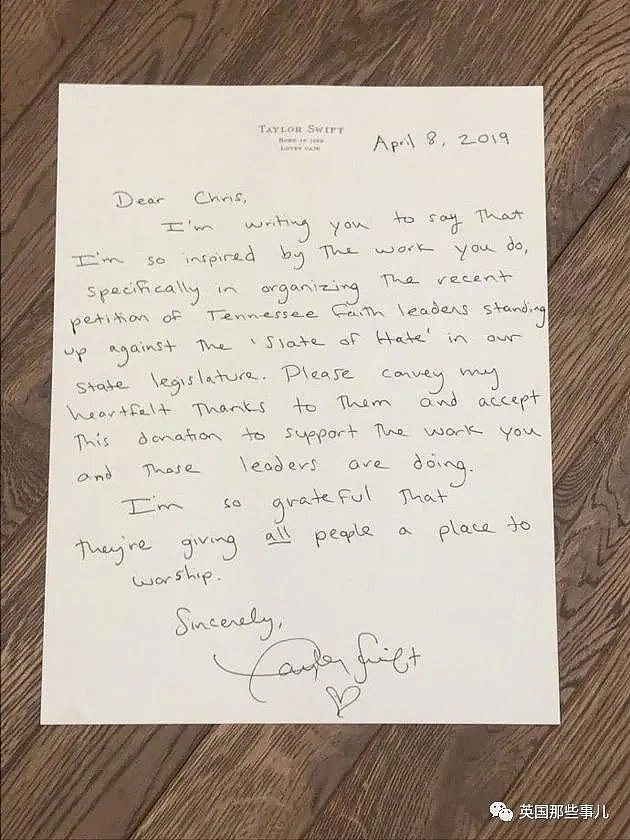 TAYLOR SWIFT
BORN IN 1989
LOVES CATS
April 8, 2019
Dear Chris,
I'm writing you to say that
I'm so inspired by the work you do,
specifically in organizing the recent
petition of Tennessee Faith leaders standing
up against the 'Slate of Hate' in our
state legislature. Please convey my
heartfelt thanks to them and accept
this donation to support the work you
and those leaders are doing.
I'm so grateful that
they're giving all people a place to
worship.
Sincerely,
Taylor Swift
英国那些事儿